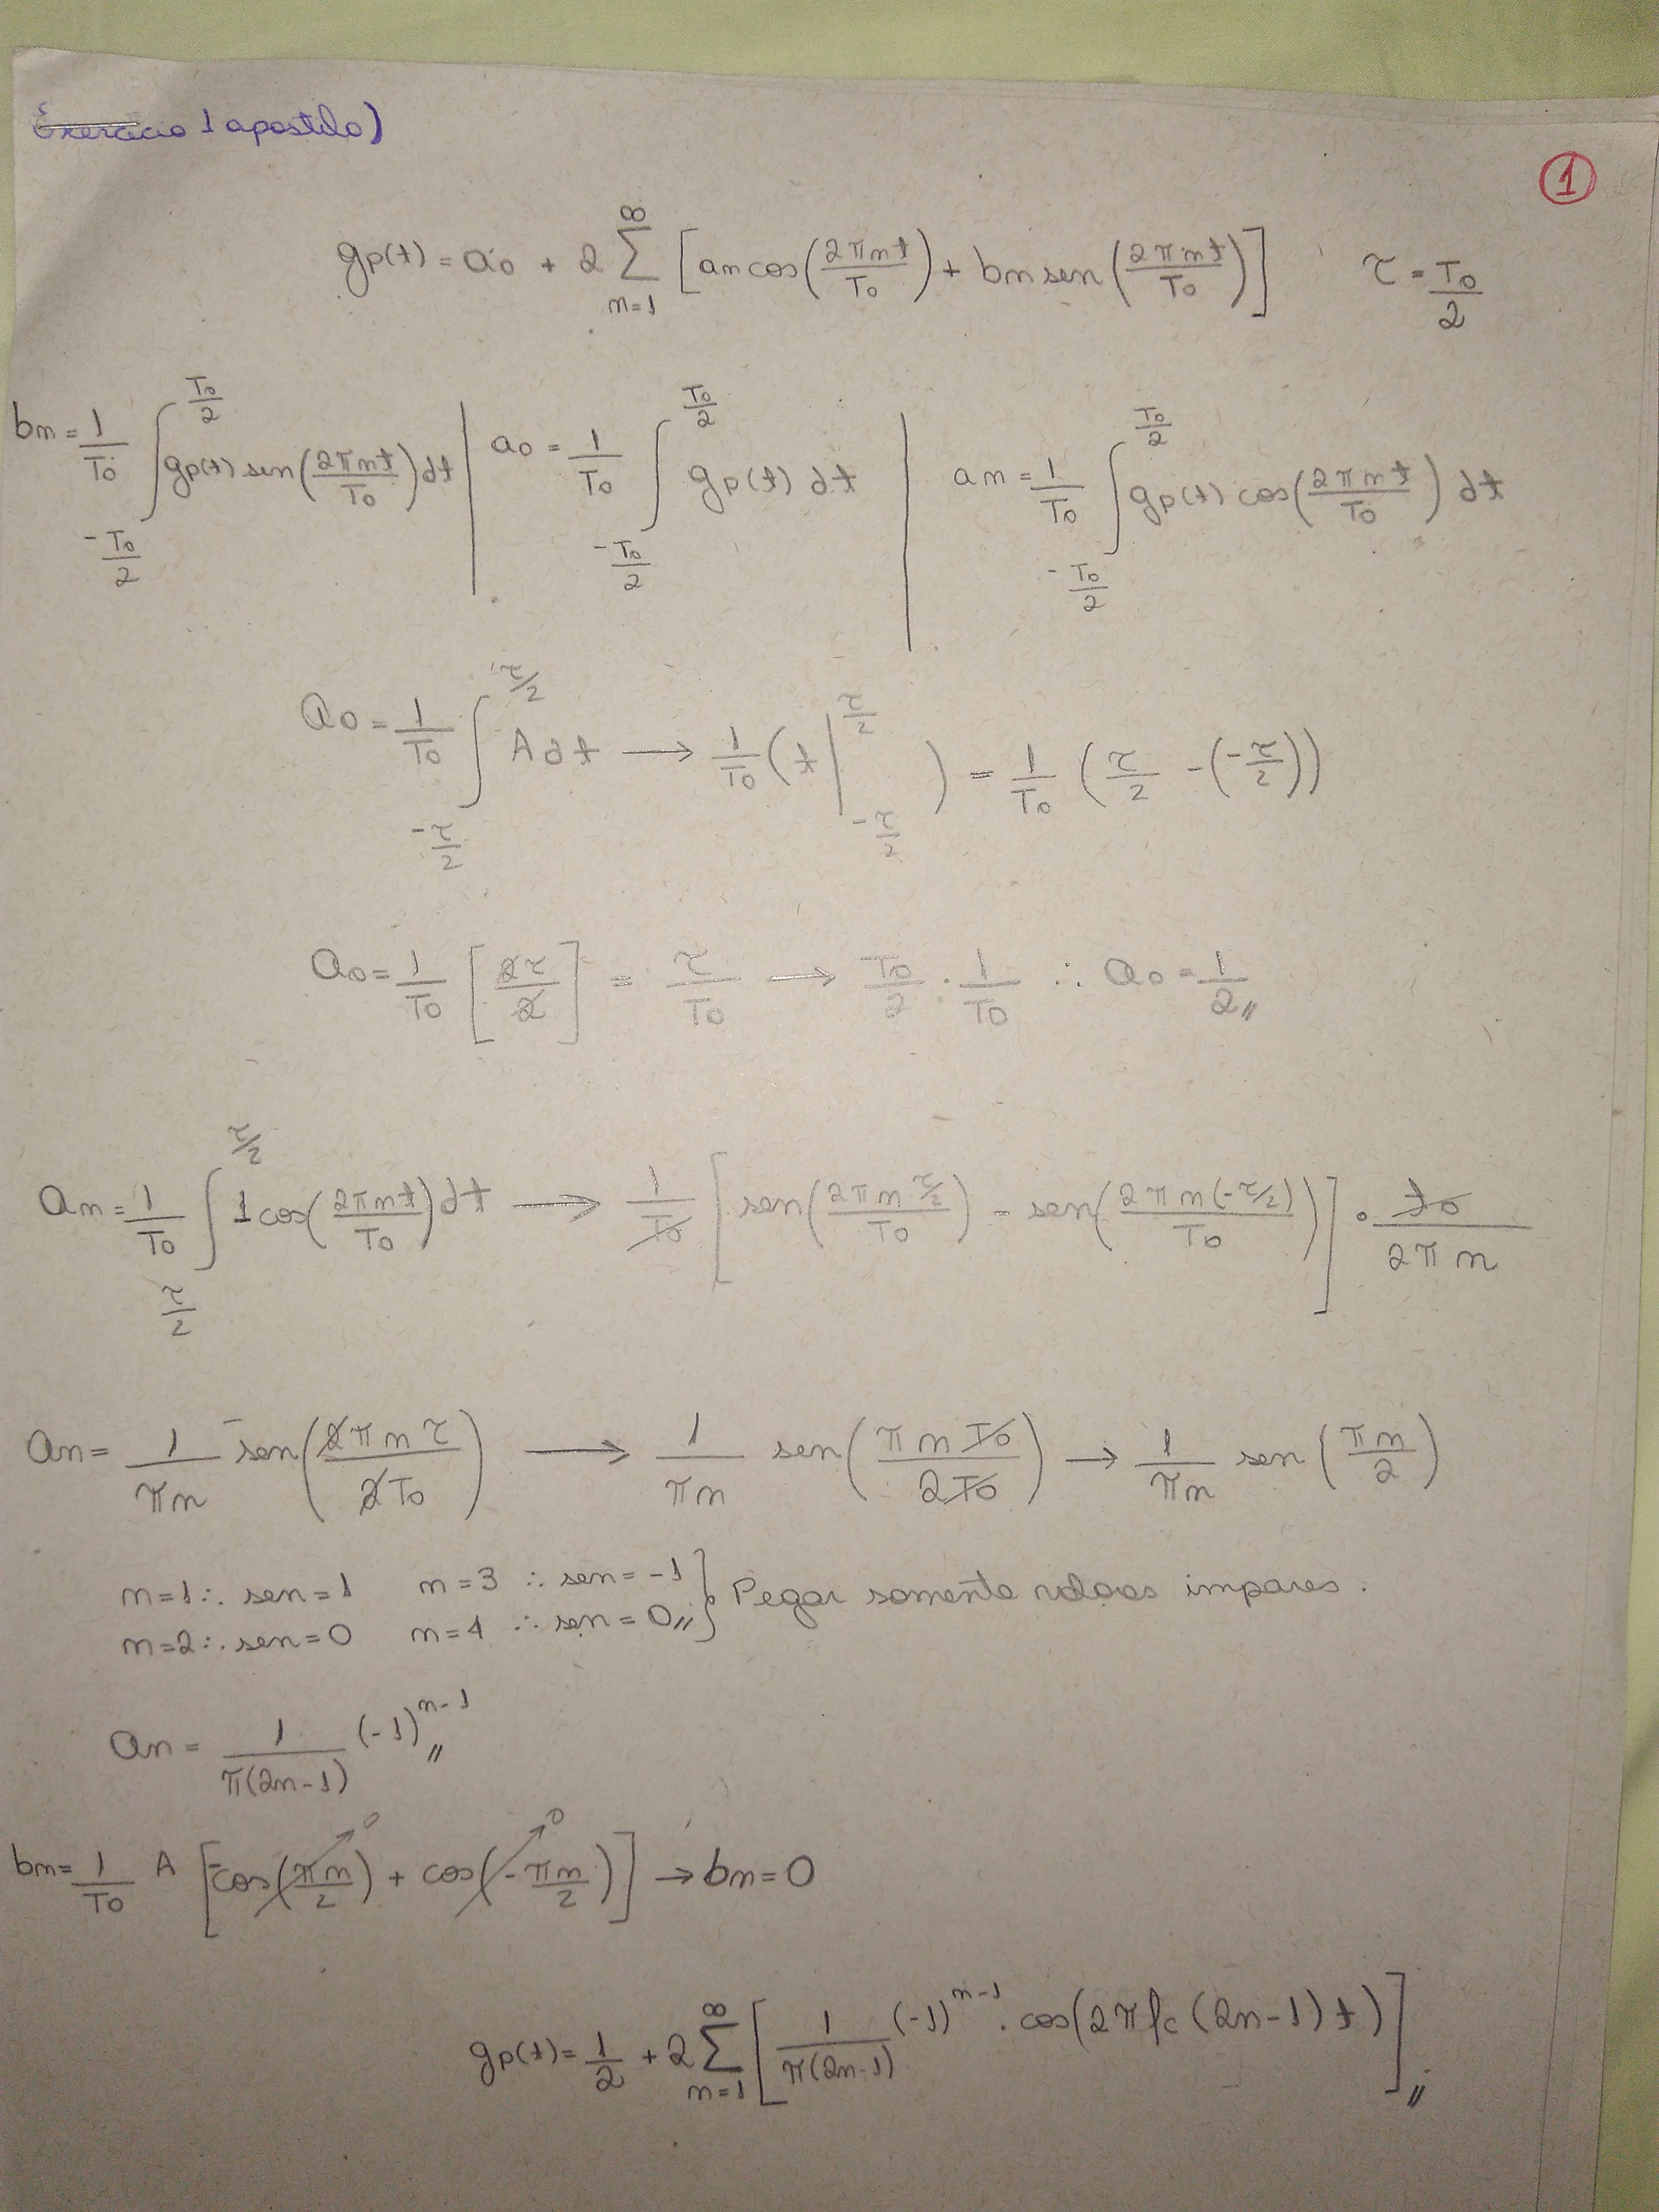 Exercício 1 apostila)
1
gp(t) = a0 + 2 ∑_{n=1}^{∞} [an cos(2πnt/T0) + bn sen(2πnt/T0)] τ = T0/2
bn = 1/T0 ∫_{-T0/2}^{T0/2} gp(t) sen(2πnt/T0) dt | a0 = 1/T0 ∫_{-T0/2}^{T0/2} gp(t) dt | an = 1/T0 ∫_{-T0/2}^{T0/2} gp(t) cos(2πnt/T0) dt
a0 = 1/T0 ∫_{-τ/2}^{τ/2} A dt → 1/T0 (t |_{-τ/2}^{τ/2}) = 1/T0 (τ/2 - (-τ/2))
a0 = 1/T0 [2τ/2] = τ/T0 → T0/2 · 1/T0 ∴ a0 = 1/2 //
an = 1/T0 ∫_{τ/2}^{τ/2} 1 cos(2πnt/T0) dt → 1/T0 [sen(2πn τ/2 / T0) - sen(2πn(-τ/2)/T0)] · t0/2πn
an = 1/πn sen(2πnτ/2T0) → 1/πn sen(πnT0/2T0) → 1/πn sen(πn/2)
n=1 ∴ sen=1 n=3 ∴ sen=-1 } Pegar somente valores impares.
n=2 ∴ sen=0 n=4 ∴ sen=0 //
an = 1/π(2n-1) (-1)^{n-1} //
bn = 1/T0 A [-cos(πn/2) + cos(-πn/2)] → bn = 0
0 0
gp(t) = 1/2 + 2 ∑_{n=1}^{∞} [1/π(2n-1) (-1)^{n-1} · cos(2πfc(2n-1)t)] //